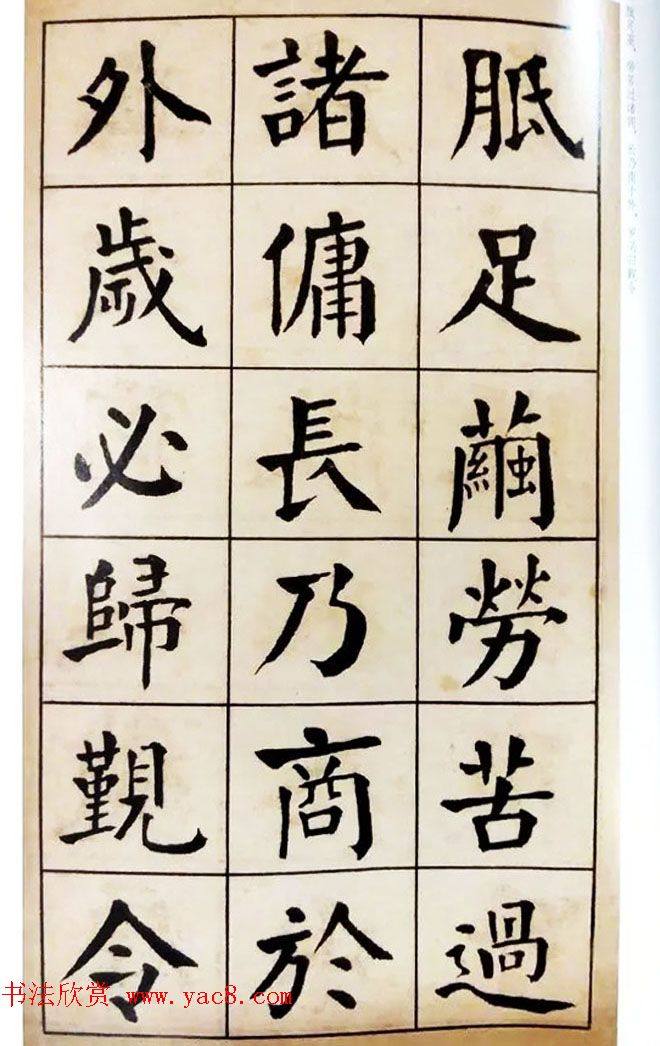 胝足繭勞苦過
諸傭長乃商於
外歲必歸覲令
书法欣赏 www.yac8.com